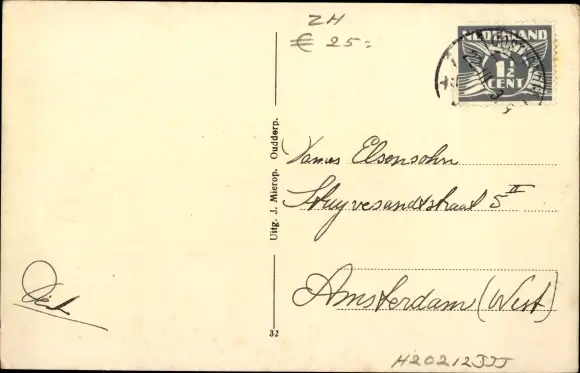 ZH
€ 25=
NEDERLAND
1½
CENT
Uitg. J. Mierop. Ouddorp.
James Elsensohn
Stuyvesandtstraat 5 II
Amsterdam (West)
32
H20212JJJ